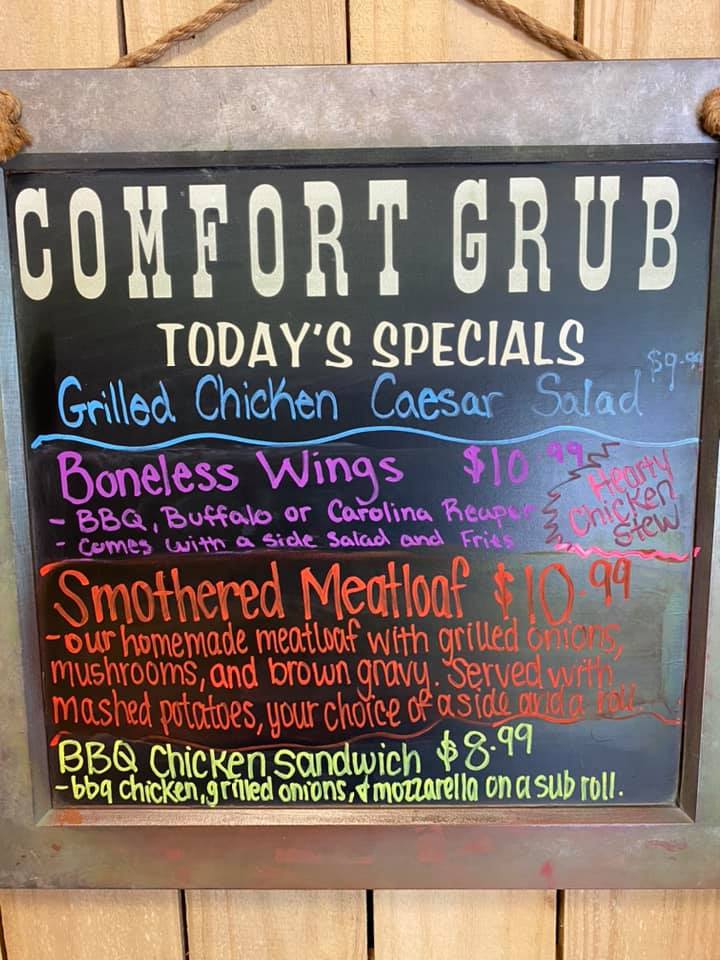 COMFORT GRUB
TODAY'S SPECIALS
$9.99
Grilled Chicken Caesar Salad
Boneless Wings $10.99
- BBQ, Buffalo or Carolina Reaper
- Comes with a side salad and Fries
Hearty
Chicken
Stew
Smothered Meatloaf $10.99
-our homemade meatloaf with grilled onions,
mushrooms, and brown gravy. Served with
mashed potatoes, your choice of a side and a roll.
BBQ Chicken Sandwich $8.99
-bbq chicken, grilled onions, & mozzarella on a sub roll.